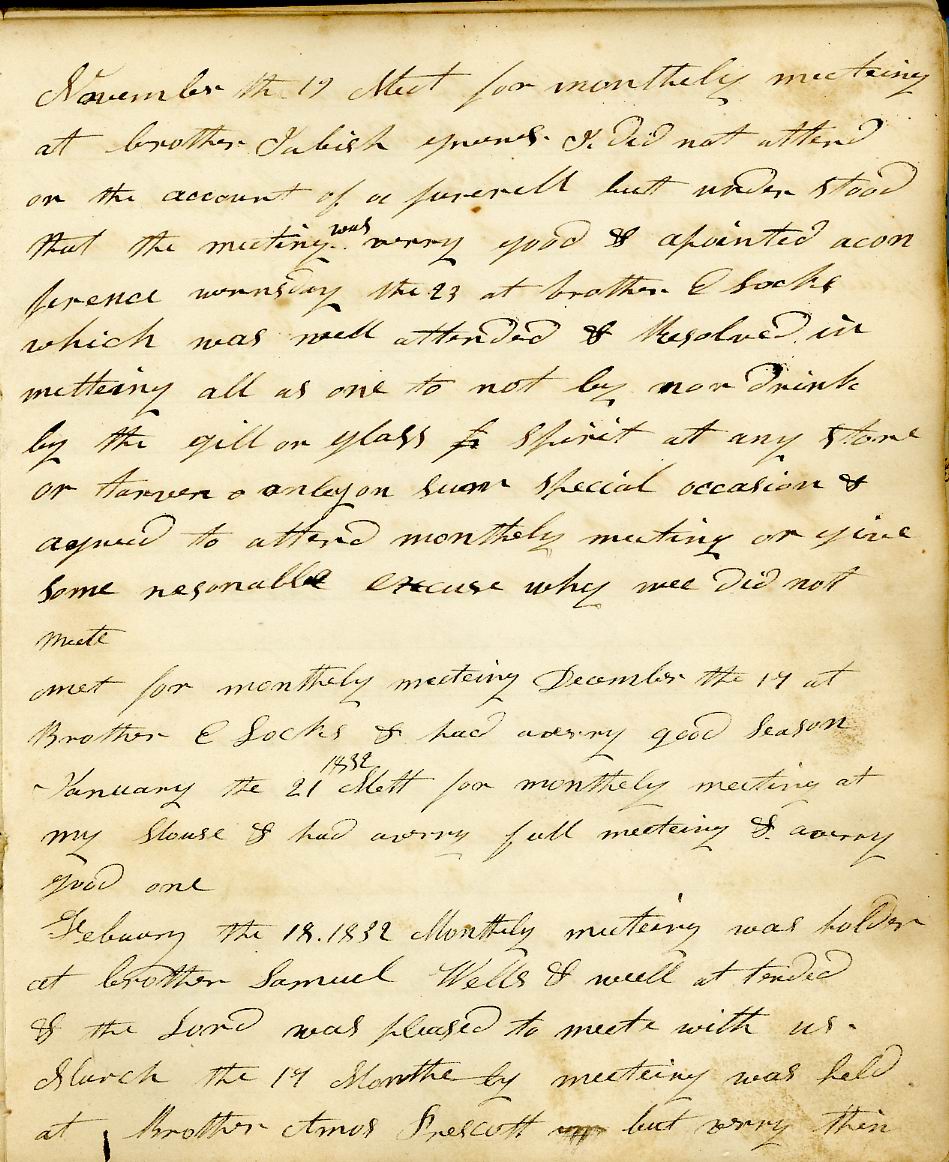 November the 19 Meet for monthely meeteing
at brother Jabish I Did not attend
on the account of a funerell but under stood
that the meeting was verry good & apointed acon
ference wensday the 23 at brother E Locks
which was well attended & Resolved in
metteing all as one to not by nor Drink
by the gill or glass spirit at any store
or tarven o anley on sum special occasion &
agreed to attend monthely meeting or give
some resonable excuse why wee Did not
meete
met for monthely meeteing December the 17 at
Brother E Locks & had averry good season
January the 21 1832 Mett for monthely meeting at
my House & had averry full meeteing & averry
good one
Febuary the 18.1832 Monthely meeteing was holden
at brother Samuel Wells & well at tended
& the Lord was pleased to meete with us.
March the 17 Monthe ly meeteing was held
at Brother Amos Prescott but verry thin